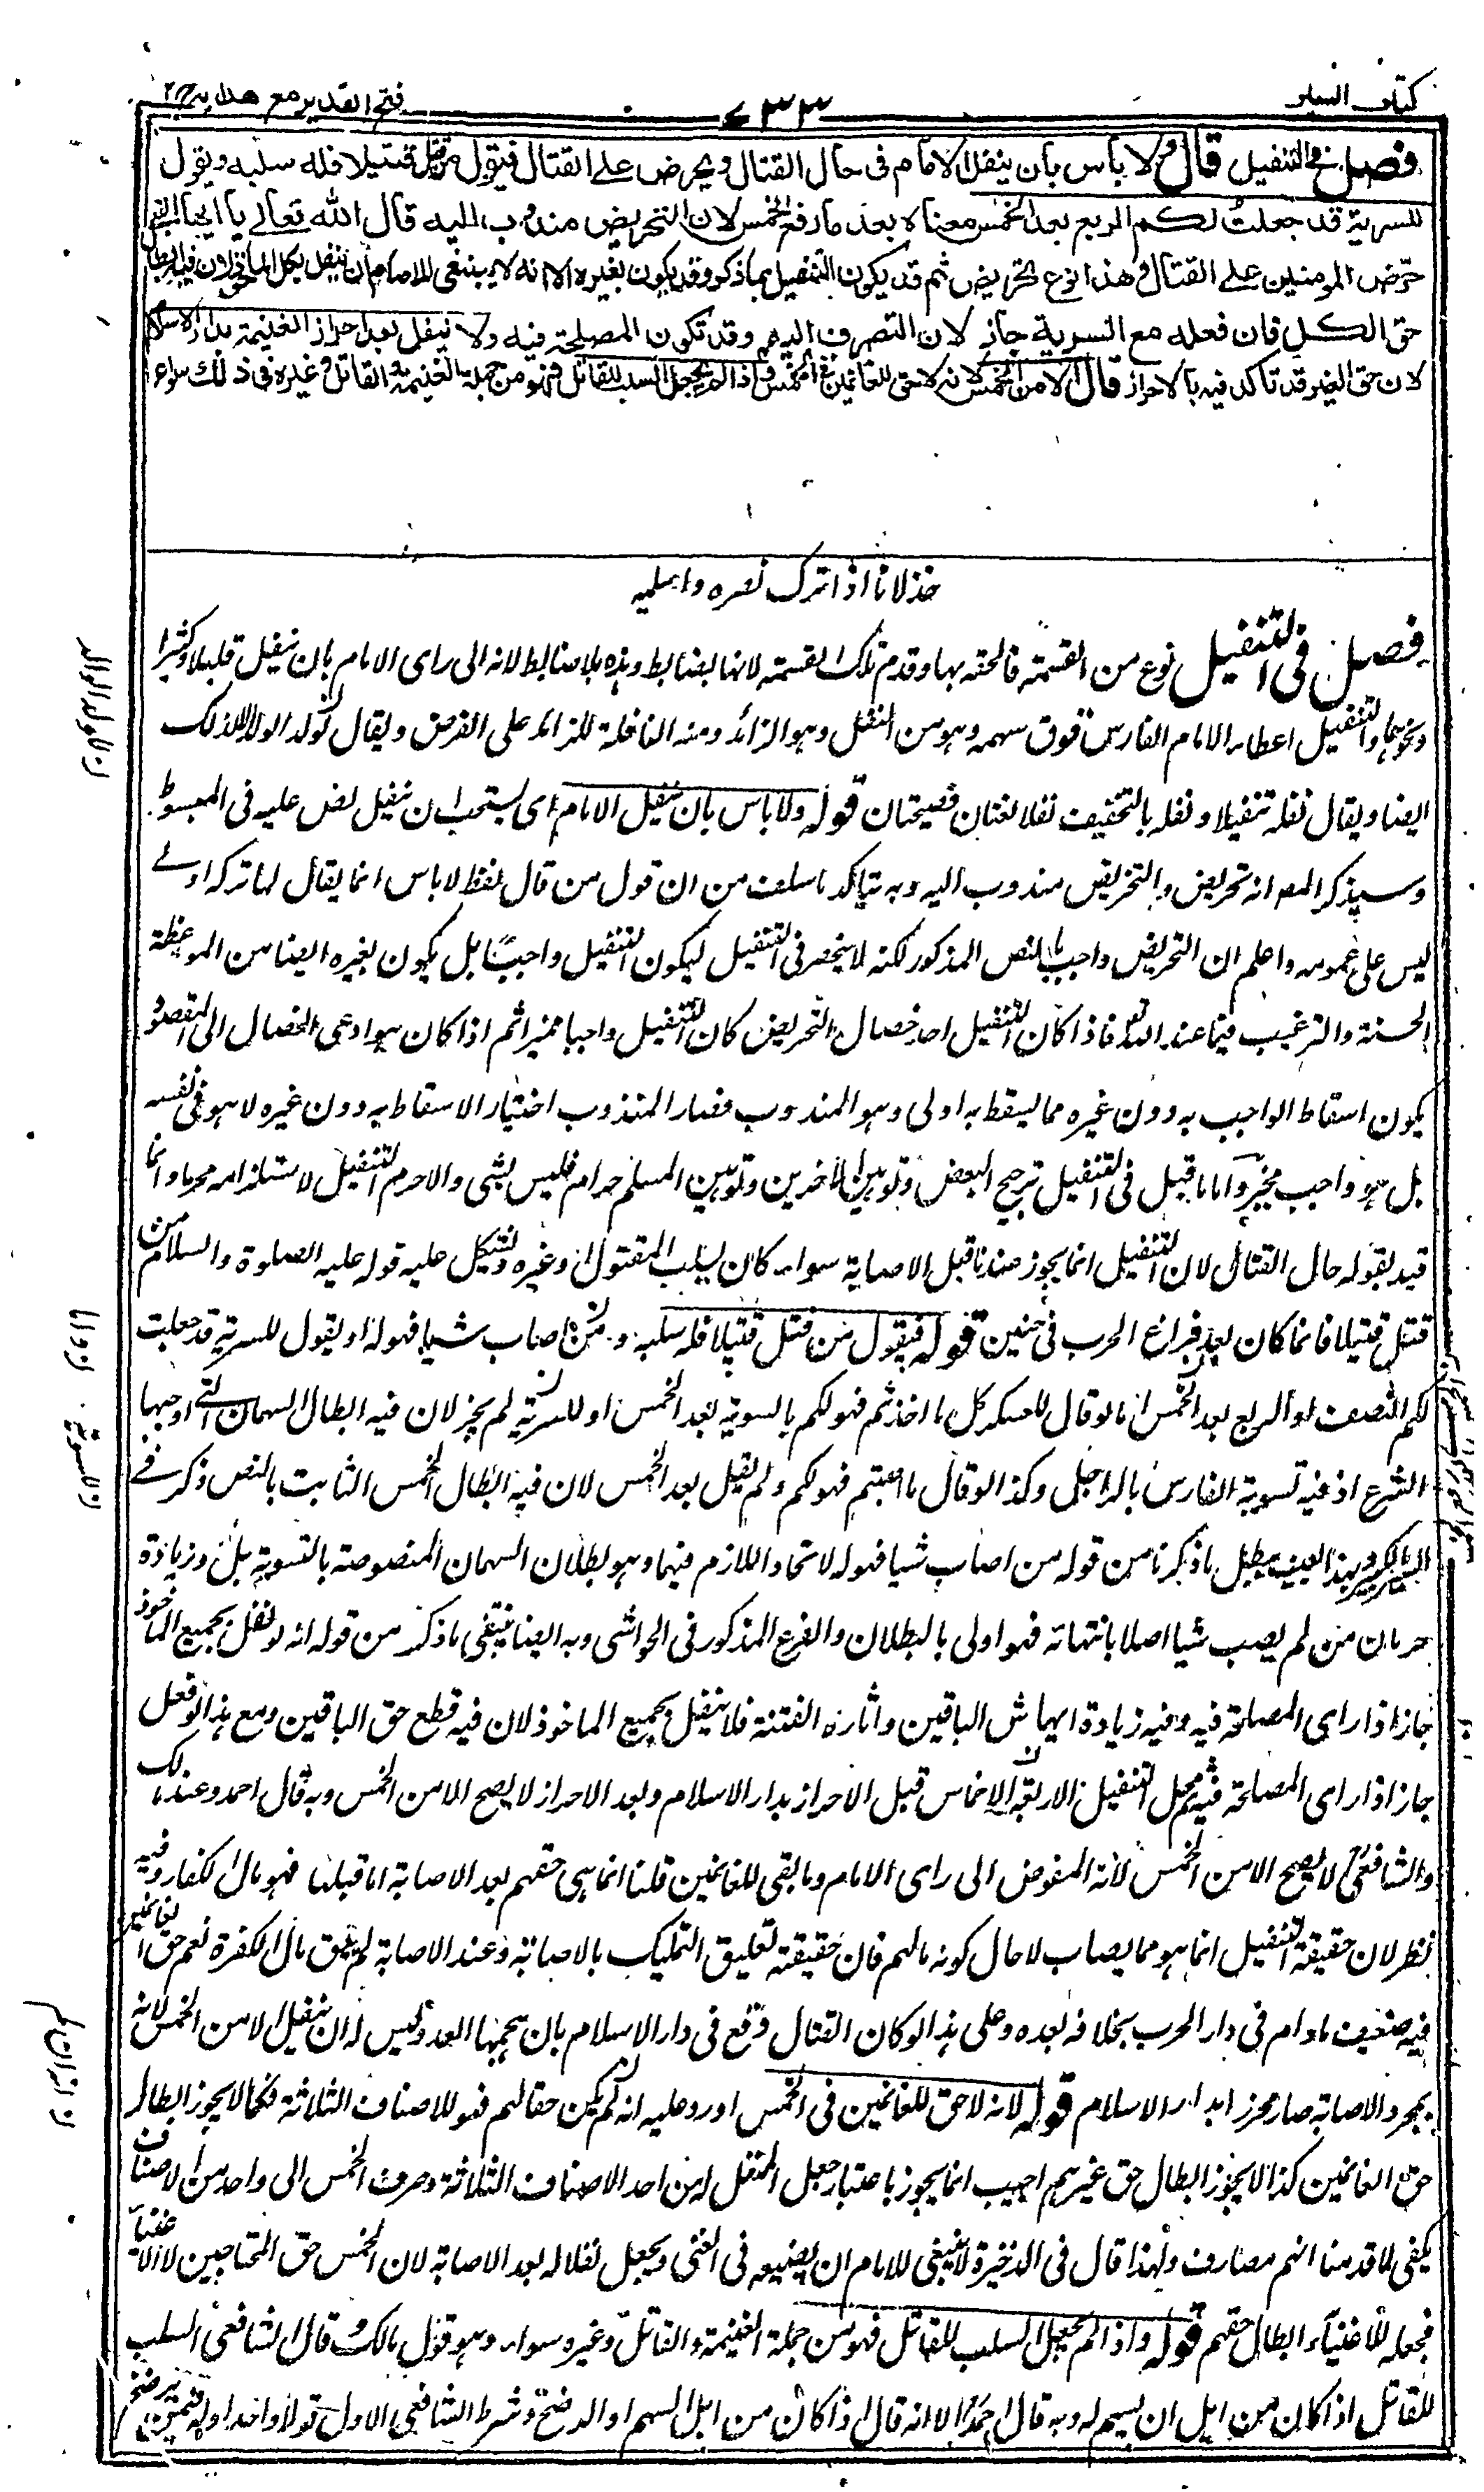 كتاب السير
٧٣٣
فتح القدير مع هداية ج٢
فصل في التنفيل قال ولا بأس بأن ينفل الامام في حال القتال ويحرض على القتال فيقول من قتل قتيلا فله سلبه ويقول
للسرية قد جعلت لكم الربع بعد الخمس معناه بعد ما رفع الخمس لان التحريض مندوب اليه قال الله تعالى يا ايها النبي
حرّض المومنين على القتال وهذا نوع تحريض ثم قد يكون التنفيل بما ذكر وقد يكون بغيره الا انه لا ينبغي للامام ان ينفل بكل الماخوذ لان فيه ابطال
حق الكل فان فعله مع السرية جاز لان التصرف اليه وقد تكون المصلحة فيه ولا ينفل بعد احراز الغنيمة بدار الاسلام
لان حق الغير قد تاكد فيه بالاحراز قال الا من الخمس لانه لا حق للغانمين في الخمس واذا لم يجعل السلب للقاتل فهو من جملة الغنيمة والقاتل وغيره في ذلك سواء
خذلانا اذا ترك نصره واسلمه
فصل في التنفيل نوع من القسمة فالحقه بها وقدم تلك القسمة لانها بضابط وهذه بلا ضابط لانه الى راى الامام بان ينفل قليلا وكثيرا
ونحوهما والتنفيل اعطاء الامام الفارس فوق سهمه وهو من النفل وهو الزائد ومنه النافلة للزائد على الفرض ويقال لولد الولد كذلك
ايضا ويقال نفله تنفيلا ونفله بالتخفيف نفلا لغتان فصيحتان قوله ولا باس بان ينفل الامام اى يستحب ان ينفل نص عليه في المبسوط
وسيذكر المصر انه تحريض والتحريض مندوب اليه وبه يتاكد ما سلف من ان قول من قال لفظ لا باس انما يقال لما تركه اولى
ليس على عمومه واعلم ان التحريض واجب بالنص المذكور لكنه لا ينحصر في التنفيل ليكون التنفيل واجبا بل يكون بغيره ايضا من الموعظة
الحسنة والترغيب فيما عند الله فاذا كان التنفيل احد خصال التحريض كان التنفيل واجبا مخيرا ثم اذا كان هو ادعى الخصال الى المقصود
يكون اسقاط الواجب به دون غيره مما يسقط به اولى وهو المندوب فصار المندوب اختيار الاسقاط به دون غيره لا هو في نفسه
بل هو واجب مخير واما ما قيل في التنفيل ترجيح البعض وتوهين الآخرين وتوهين المسلم حرام فليس بشى والا حرم التنفيل لاستلزامه محرما وانما
قيد بقوله حال القتال لان التنفيل انما يجوز عندنا قبل الاصابة سواء كان بسلب المقتول او غيره ويشكل عليه قوله عليه الصلوة والسلام من
قتل قتيلا فانما كان بعد فراغ الحرب في حنين قوله فيقول من قتل قتيلا فله سلبه ومن اصاب شيا فهو له او يقول للسرية قد جعلت
لكم النصف او الربع بعد الخمس اما لو قال للعسكر كل ما اخذتم فهو لكم بالسوية بعد الخمس او للسرية لم يجز لان فيه ابطال السهمان التى اوجبها
الشرع اذ فيه تسوية الفارس بالراجل وكذا لو قال ما اصبتم فهو لكم ولم يقل بعد الخمس لان فيه ابطال الخمس الثابت بالنص ذكره في
السير الكبير وهذا بعينه يبطل ما ذكرنا من قوله من اصاب شيا فهو له لاتحاد اللازم فيهما وهو بطلان السهمان المنصوصة بالتسوية بل وزيادة
حرمان من لم يصب شيا اصلا بانتهائه فهو اولى بالبطلان والفرع المذكور في الحواشى وبه ايضا ينتفى ما ذكر من قوله انه لو نفل بجميع الماخوذ
جاز اذا راى المصلحة فيه وفيه زيادة ايحاش الباقين واثارة الفتنة فلا ينفل بجميع الماخوذ لان فيه قطع حق الباقين ومع هذا لو فعل
جاز اذا راى المصلحة فيه ثم محل التنفيل الاربعة الاخماس قبل الاحراز بدار الاسلام وبعد الاحراز لا يصح الا من الخمس وبه قال احمد وعند مالك
والشافعى لا يصح الا من الخمس لانه المفوض الى راى الامام وما بقى للغانمين قلنا انما هى حقهم بعد الاصابة اما قبلها فهو مال الكفار وفيه
نظر لان حقيقة التنفيل انما هو مما يصاب لا حال كونه مالهم فان حقيقته تعليق التمليك بالاصابة وعند الاصابة لم يبق مال الكفرة نعم حق الغانمين
فيه ضعيف ما دام في دار الحرب بخلافه بعده وعلى هذا لو كان القتال وقع في دار الاسلام بان هجمها العدو ليس له ان ينفل الا من الخمس لانه
بمجرد الاصابة صار محرزا بدار الاسلام قوله لانه لا حق للغانمين في الخمس اورد عليه انه ان لم يكن حقا لهم فهو للاصناف الثلاثة فكما لا يجوز ابطال
حق الغانمين كذا لا يجوز ابطال حق غيرهم اجيب انما يجوز باعتبار جعل المنفل له من احد الاصناف الثلاثة وصرف الخمس الى واحد من الاصناف
يكفى لما قدمنا انهم مصارف ولهذا قال في الذخيرة لا ينبغى للامام ان يضيعه في الغنى ويجعل نفلا له بعد الاصابة لان الخمس حق المحتاجين لا الاغنياء
فجعله للاغنياء ابطال حقهم قوله واذا لم يجعل السلب للقاتل فهو من جملة الغنيمة والقاتل وغيره سواء وهو قول مالك وقال الشافعى السلب
للقاتل اذا كان من اهل ان يسهم له وبه قال احمد الا انه قال اذا كان من اهل السهم او الرضخ وشرط الشافعى الاول قولا واحدا وله فيمن يرضخ